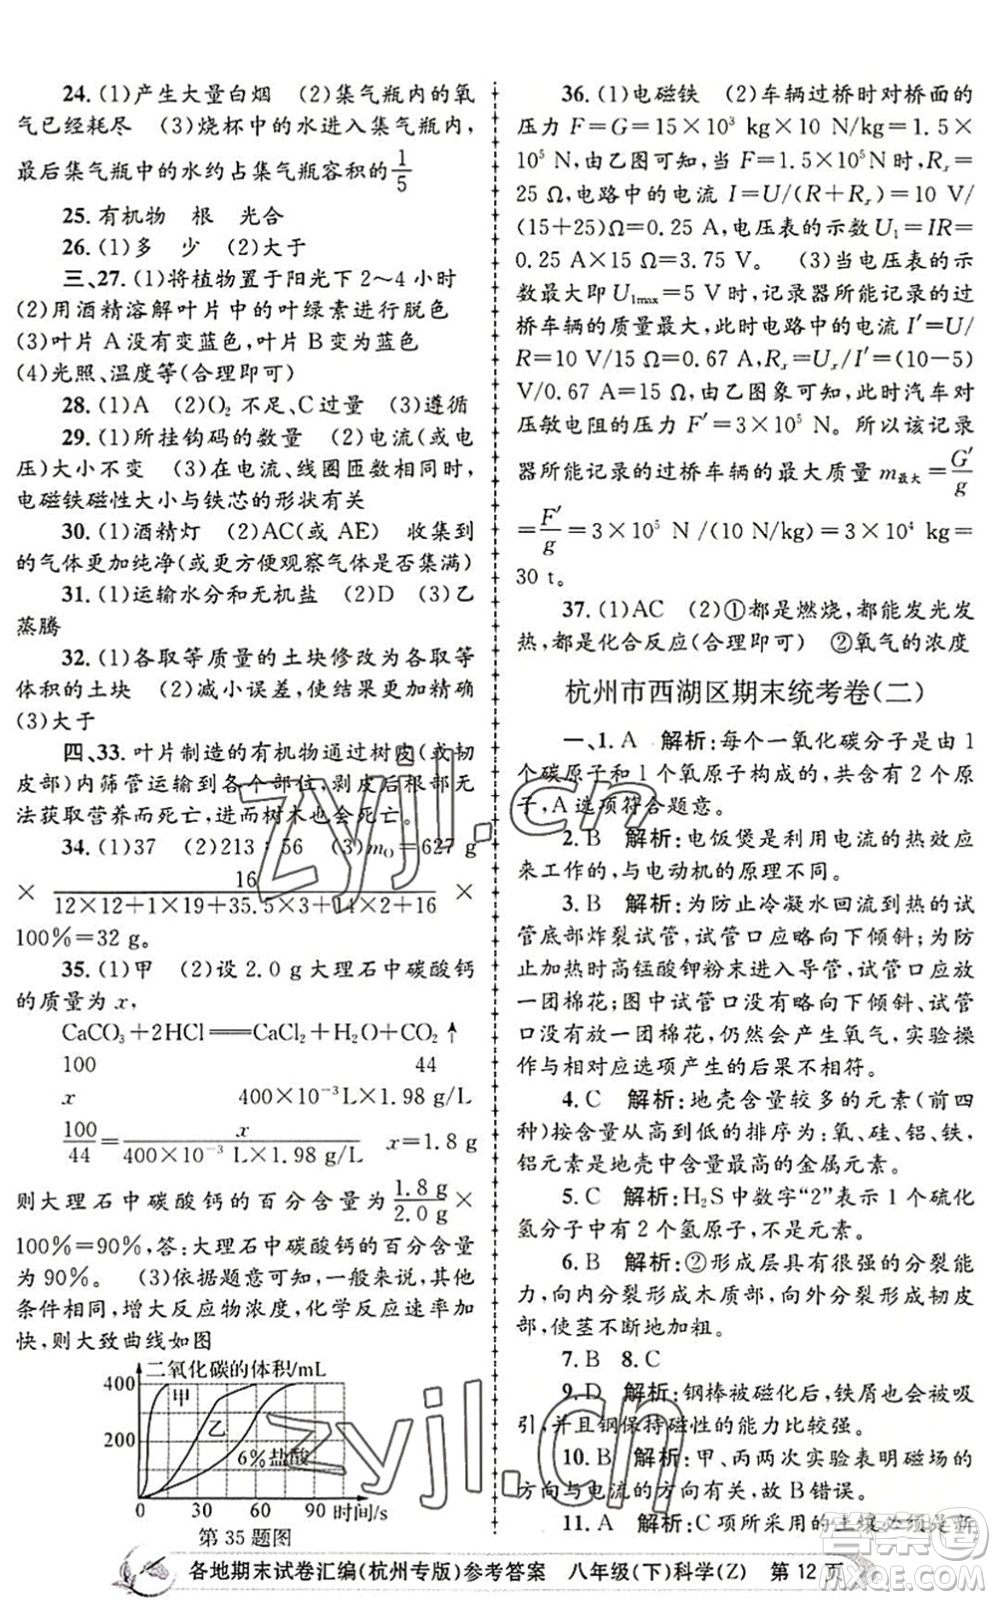 24. (1)产生大量白烟 (2)集气瓶内的氧
气已经耗尽 (3)烧杯中的水进入集气瓶内,
最后集气瓶中的水约占集气瓶容积的1/5
25. 有机物 根 光合
26. (1)多 少 (2)大于
三、27. (1)将植物置于阳光下 2～4 小时
(2)用酒精溶解叶片中的叶绿素进行脱色
(3)叶片 A 没有变蓝色,叶片 B 变为蓝色
(4)光照、温度等(合理即可)
28. (1)A (2)O₂ 不足、C 过量 (3)遵循
29. (1)所挂钩码的数量 (2)电流(或电
压)大小不变 (3)在电流、线圈匝数相同时,
电磁铁磁性大小与铁芯的形状有关
30. (1)酒精灯 (2)AC(或 AE) 收集到
的气体更加纯净(或更方便观察气体是否集满)
31. (1)运输水分和无机盐 (2)D (3)乙
蒸腾
32. (1)各取等质量的土块修改为各取等
体积的土块 (2)减小误差,使结果更精确
(3)大于
四、33. 叶片制造的有机物通过树皮(或韧
皮部)内筛管运输到各个部位,剥皮后根部无
法获取营养而死亡,使树木也会死亡。
34. (1)37 (2)213∶56 (3)m_O=627 g
× 16/(12×12+1×19+35.5×3+14×2+16) ×
100%=32 g。
35. (1)甲 (2)设 2.0 g 大理石中碳酸钙
的质量为 x,
CaCO₃+2HCl══CaCl₂+H₂O+CO₂↑
100 44
x 400×10⁻³ L×1.98 g/L
100/44=x/(400×10⁻³ L×1.98 g/L) x=1.8 g
则大理石中碳酸钙的百分含量为 1.8 g/2.0 g ×
100%=90%,答:大理石中碳酸钙的百分含量
为 90%。 (3)依据题意可知,一般来说,其他
条件相同,增大反应物浓度,化学反应速率加
快,则大致曲线如图
二氧化碳的体积/mL
400
甲
乙
200
6%盐酸
0 30 60 90 时间/s
第 35 题图
36. (1)电磁铁 (2)车辆过桥时对桥面的
压力 F=G=15×10³ kg×10 N/kg=1.5×
10⁵ N,由乙图可知,当 F=1.5×10⁵ N 时,Rₓ=
25 Ω,电路中的电流 I=U/(R+Rₓ)=10 V/
(15+25)Ω=0.25 A,电压表的示数 U₁=IR=
0.25 A×15 Ω=3.75 V。 (3)当电压表的示
数最大即 U₁max=5 V 时,记录器所能记录的过
桥车辆的质量最大,此时电路中的电流 I′=U/
R=10 V/15 Ω=0.67 A,Rₓ=Uₓ/I′=(10-5)
V/0.67 A=7.5 Ω,由乙图象可知,此时汽车对
压敏电阻的压力 F′=3×10⁵ N。所以该记录
器所能记录的过桥车辆的最大质量 m最大=G′/g
=F′/g=3×10⁵ N/(10 N/kg)=3×10⁴ kg=
30 t。
37. (1)AC (2)①都是燃烧,都能发光发
热,都是化合反应(合理即可) ②氧气的浓度
杭州市西湖区期末统考卷(二)
一、1. A 解析:每个一氧化碳分子是由 1
个碳原子和 1 个氧原子构成的,共含有 2 个原
子,A 选项符合题意。
2. B 解析:电饭煲是利用电流的热效应
来工作的,与电动机的原理不同。
3. B 解析:为防止冷凝水回流到热的试
管底部炸裂试管,试管口应略向下倾斜;为防
止加热时高锰酸钾粉末进入导管,试管口应放
一团棉花;图中试管口没有略向下倾斜、试管
口没有放一团棉花,仍然会产生氧气,实验操
作与相对应选项产生的后果不相符。
4. C 解析:地壳含量较多的元素(前四
种)按含量从高到低的排序为:氧、硅、铝、铁,
铝元素是地壳中含量最高的金属元素。
5. C 解析:H₂S 中数字“2”表示 1 个硫化
氢分子中有 2 个氢原子,不是元素。
6. B 解析:②形成层具有很强的分裂能
力,向内分裂形成木质部,向外分裂形成韧皮
部,使茎不断地加粗。
7. B 8. C
9. D 解析:钢棒被磁化后,铁屑也会被吸
引,并且钢保持磁性的能力比较强。
10. B 解析:甲、丙两次实验表明磁场的
方向与电流的方向有关,故 B 错误。
11. A 解析:C 项所采用的土壤必须是新
各地期末试卷汇编(杭州专版)参考答案 八年级(下)科学(Z) 第 12 页
zyjl.cn
zyjl.cn